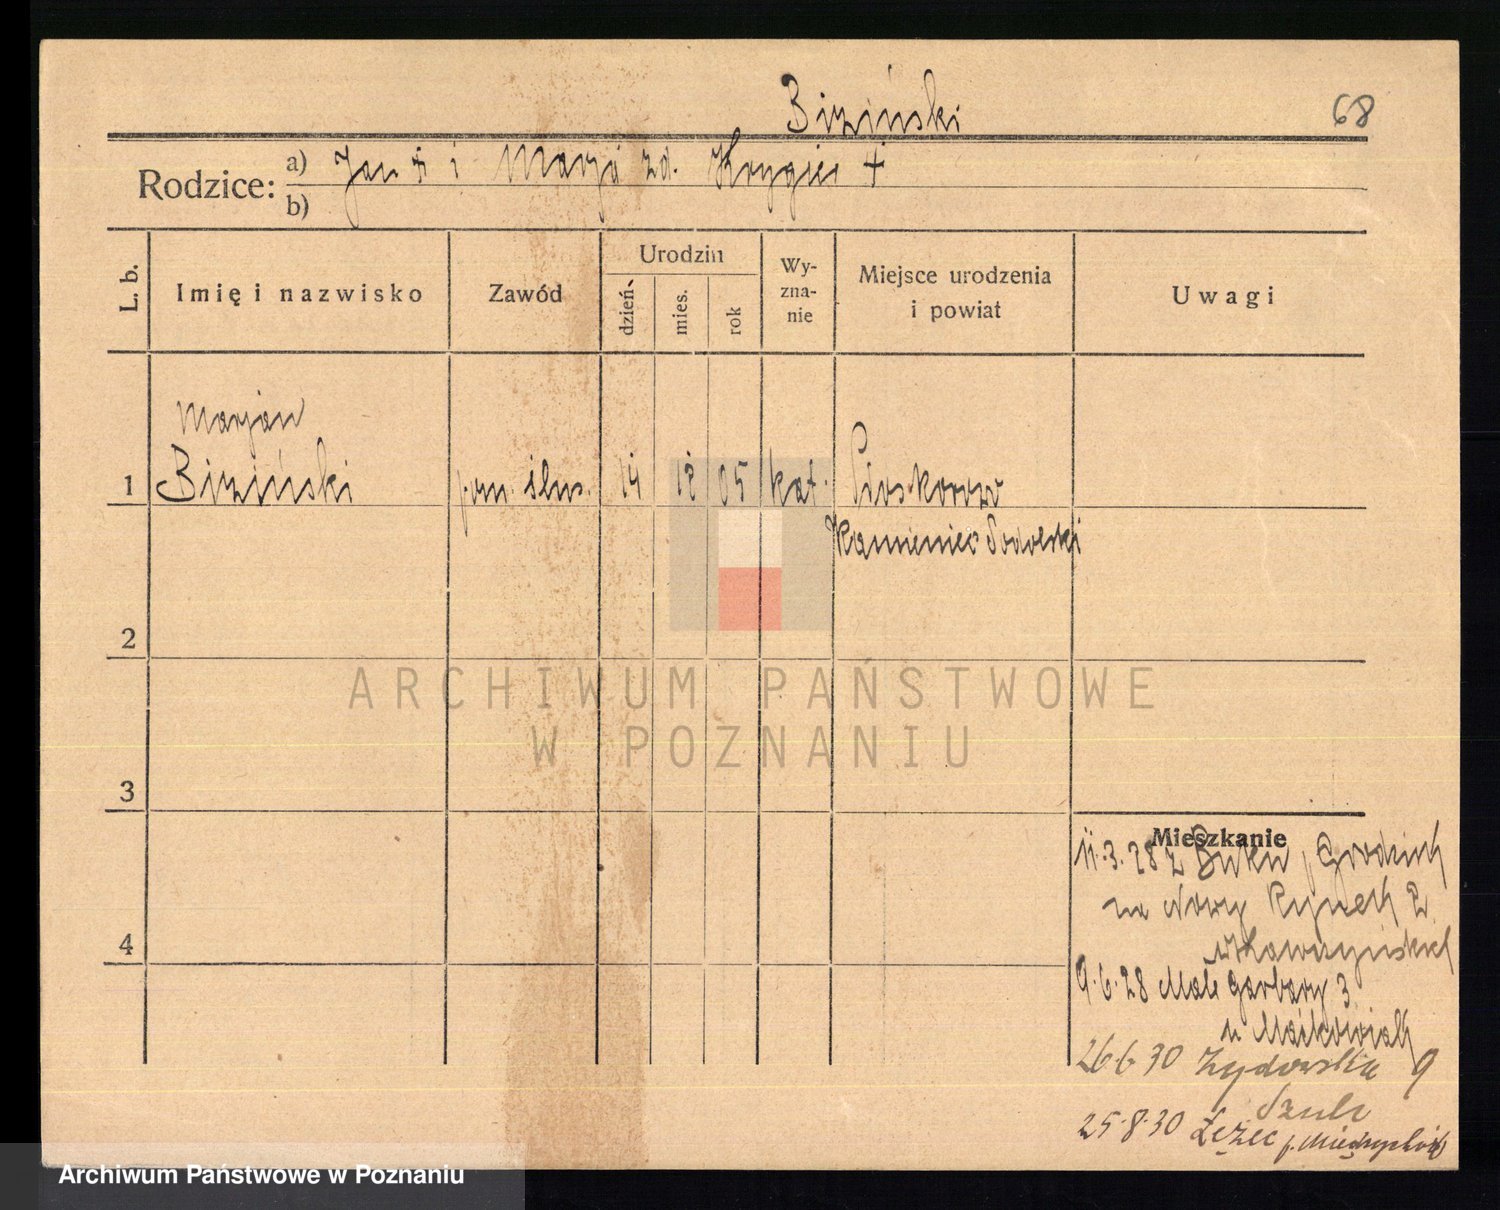 Biziński
68
Rodzice:
a) Jan † i Marja zd. Krygier †
b)
L. b.
Imię i nazwisko
Zawód
Urodzin
dzień
mies.
rok
Wy-
zna-
nie
Miejsce urodzenia
i powiat
Uwagi
Marjan
1 Biziński pom. ślus. 14 12 05 kat. Płoskorow
Kamieniec Podolski
2
3
4
Mieszkanie
11.3.28 z Buku, Grodzisk
na Nowy Rynek 2
9.6.28 Małe Garbary 3
u
26.6.30 Żydowska 9
Szulc
25.8.30 Łężec p. Międzychód
ARCHIWUM PAŃSTWOWE
W POZNANIU
Archiwum Państwowe w Poznaniu